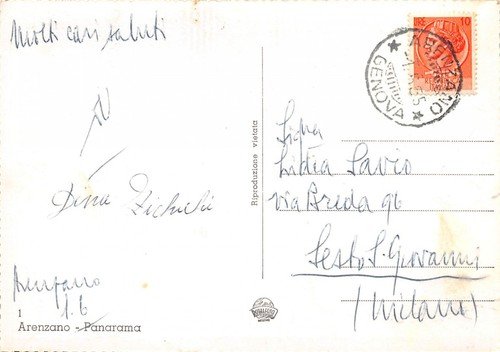 Molti cari saluti
Dina
Arenzano
1.6
1
Arenzano - Panorama
Riproduzione vietata
10
ARENZANO
GENOVA
Sig.ra
Lidia Savio
via Breda 96
Sesto S. Giovanni
(Milano)